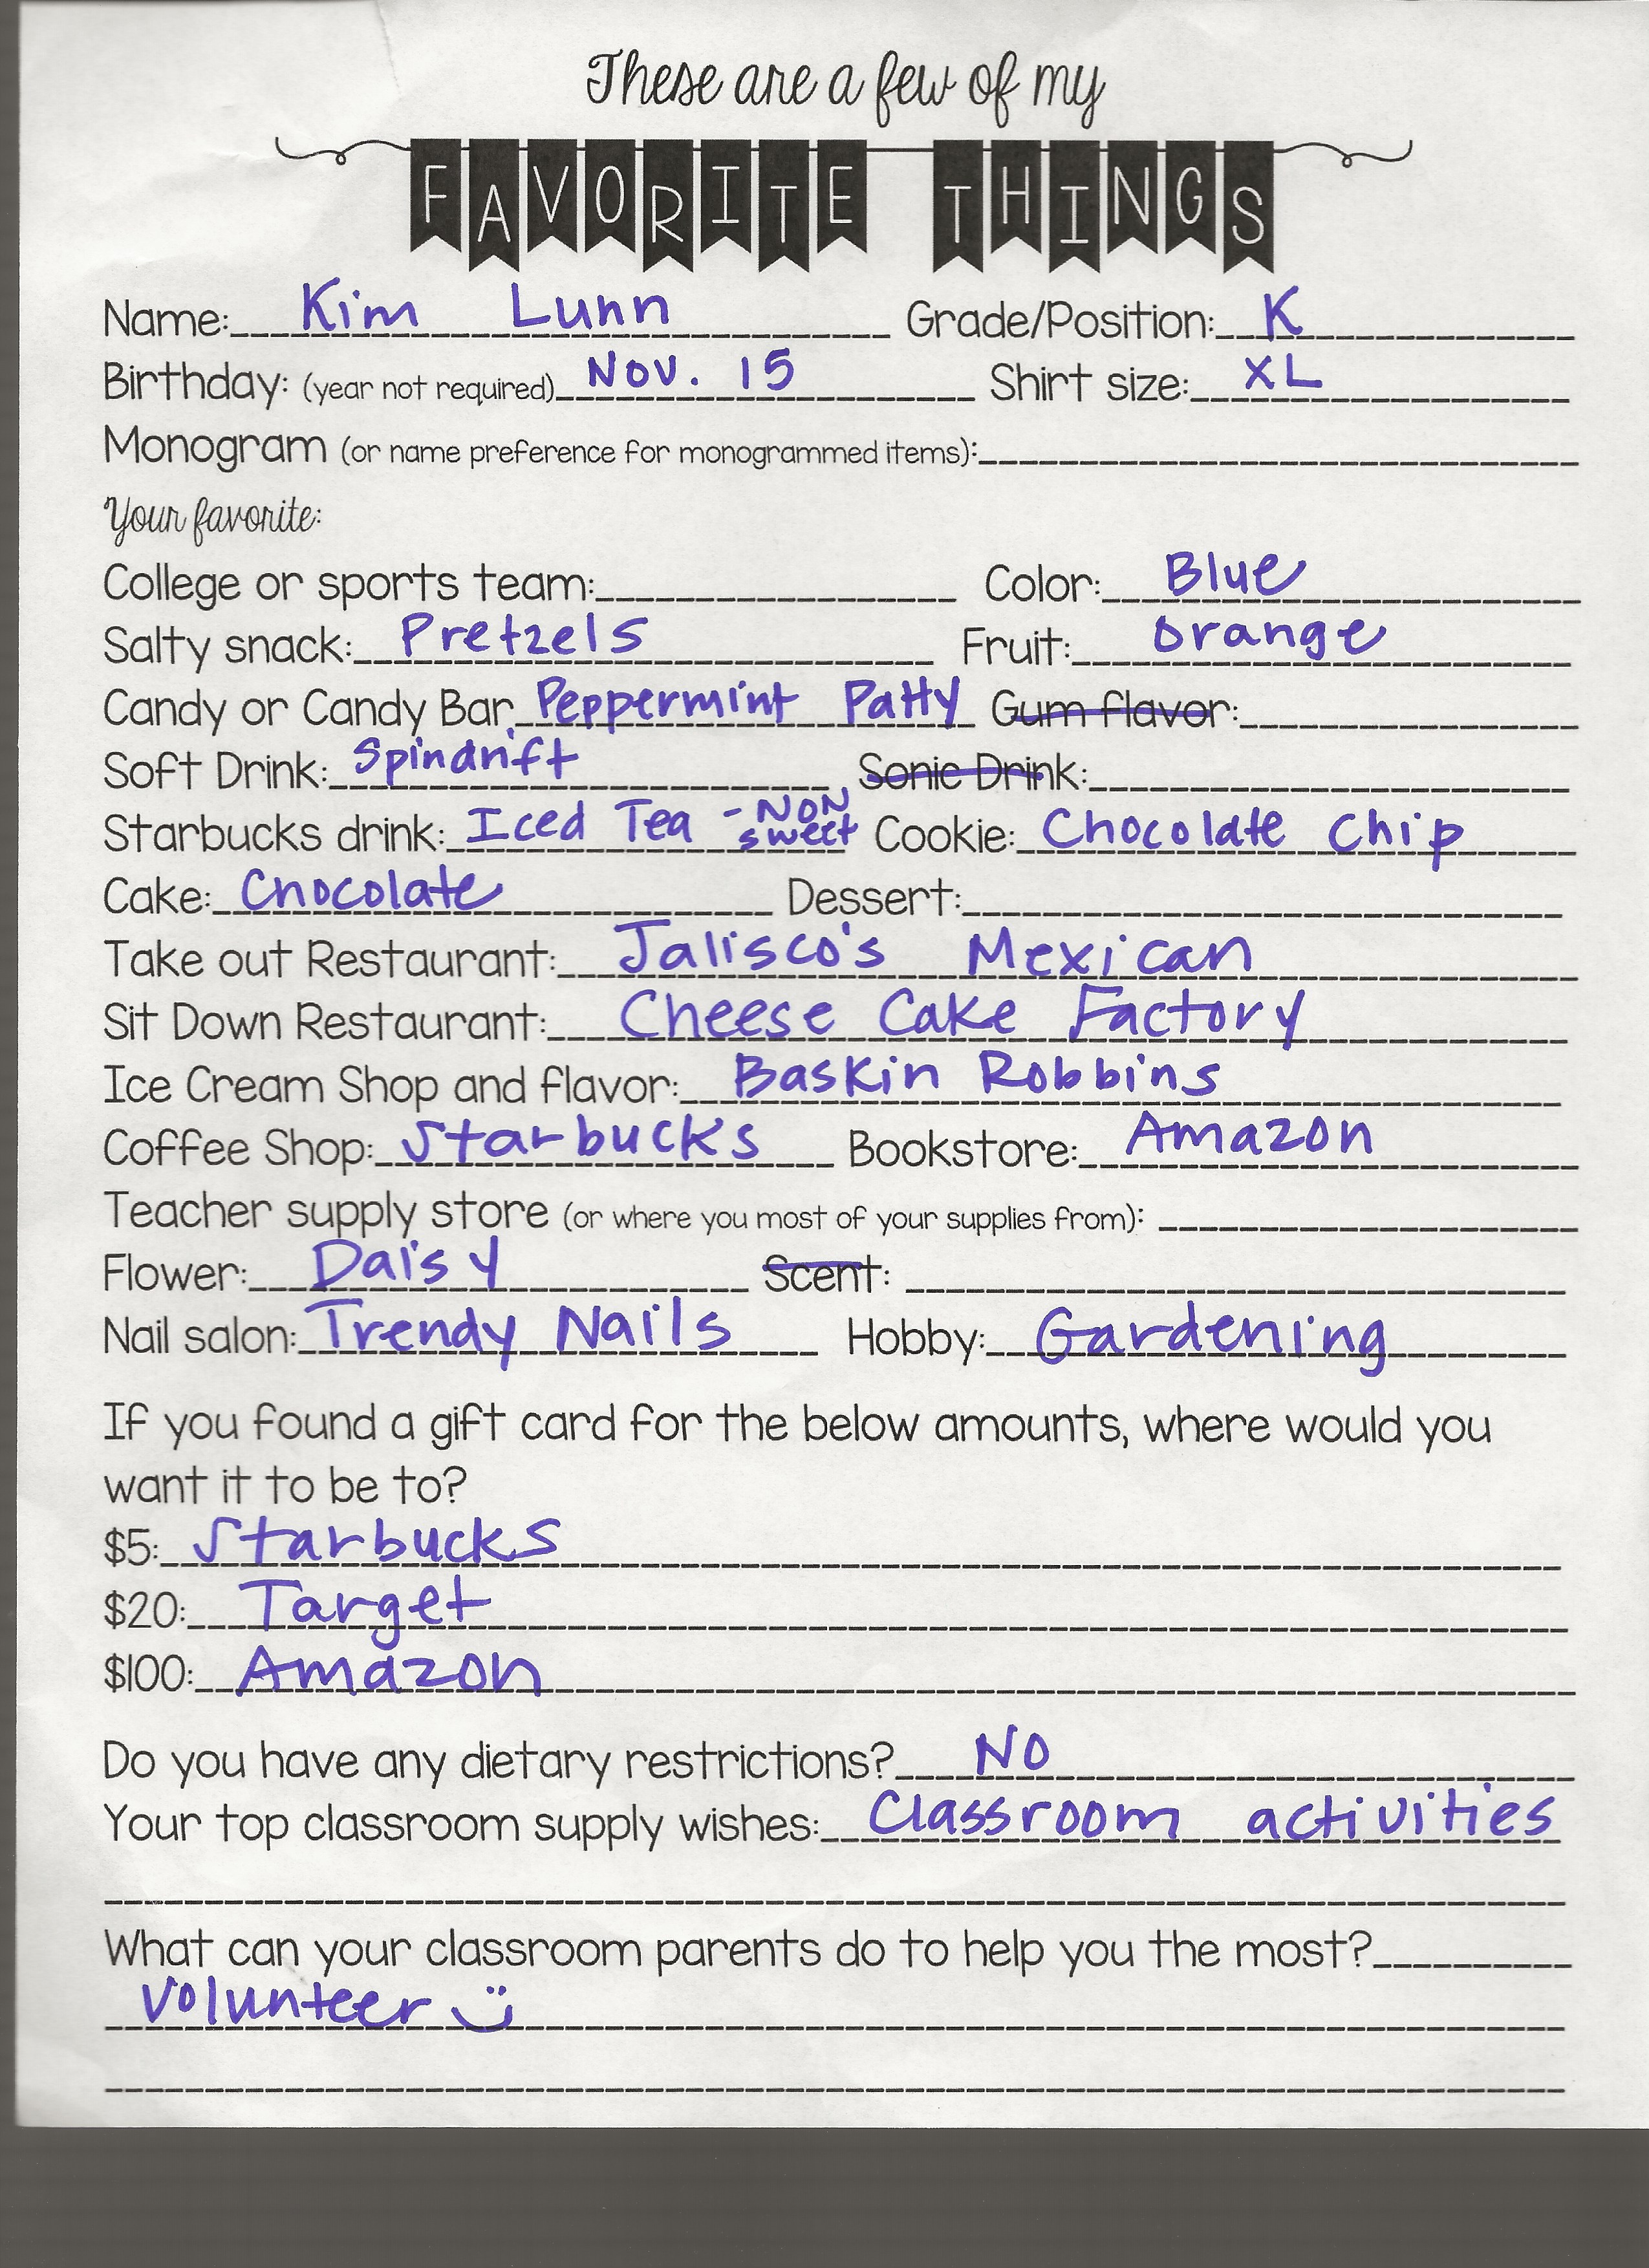 These are a few of my
FAVORITE THINGS
Name: Kim Lunn Grade/Position: K
Birthday: (year not required) Nov. 15 Shirt size: XL
Monogram (or name preference for monogrammed items):
Your favorite:
College or sports team: Color: Blue
Salty snack: Pretzels Fruit: orange
Candy or Candy Bar Peppermint Patty Gum flavor:
Soft Drink: Spindrift Sonic Drink:
Starbucks drink: Iced Tea - NON sweet Cookie: Chocolate Chip
Cake: Chocolate Dessert:
Take out Restaurant: Jalisco's Mexican
Sit Down Restaurant: Cheese Cake Factory
Ice Cream Shop and flavor: Baskin Robbins
Coffee Shop: Starbucks Bookstore: Amazon
Teacher supply store (or where you most of your supplies from):
Flower: Daisy Scent:
Nail salon: Trendy Nails Hobby: Gardening
If you found a gift card for the below amounts, where would you
want it to be to?
$5: Starbucks
$20: Target
$100: Amazon
Do you have any dietary restrictions? NO
Your top classroom supply wishes: Classroom activities
What can your classroom parents do to help you the most?
Volunteer